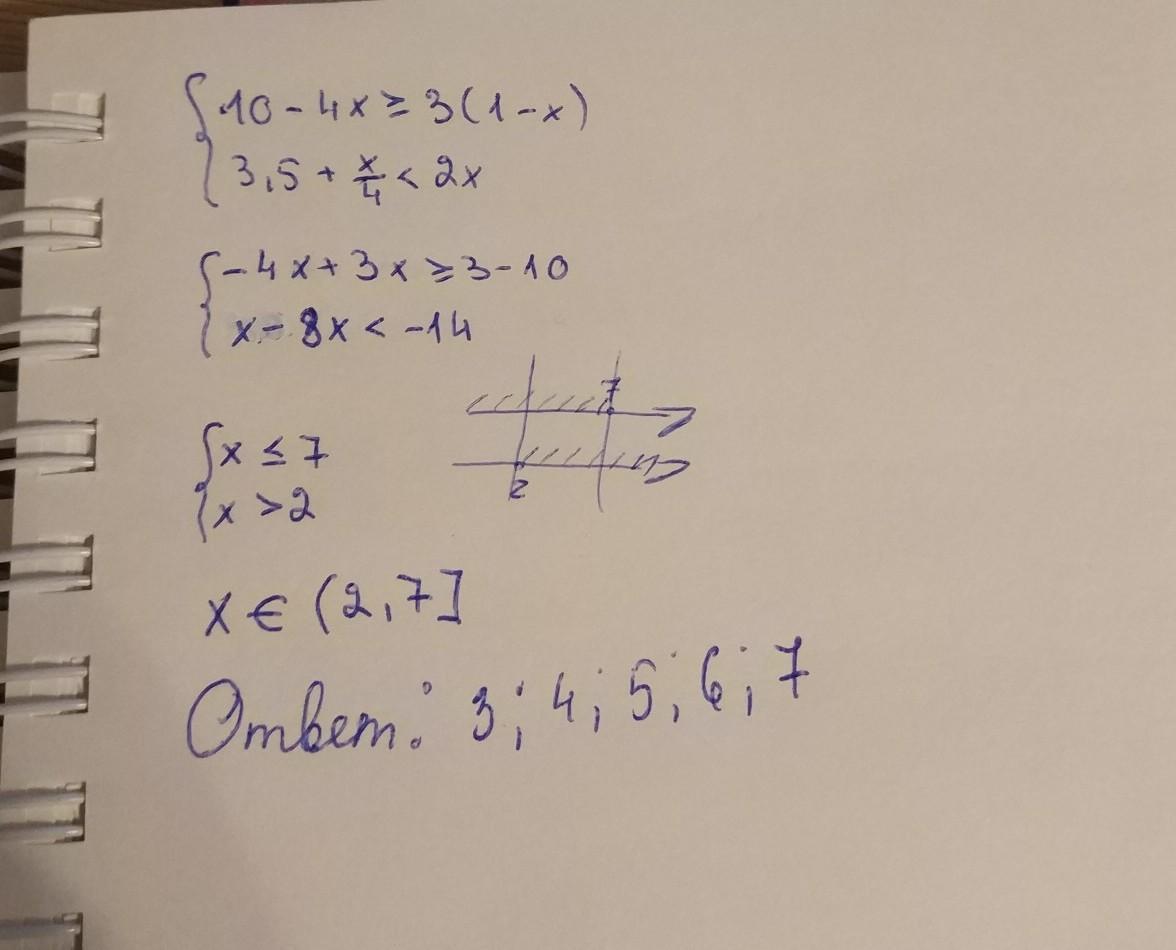 10 - 4x ≥ 3(1 - x)
3,5 + x/4 < 2x
-4x + 3x ≥ 3 - 10
x - 8x < -14
7
2
x ≤ 7
x > 2
x ∈ (2, 7]
Ответ: 3; 4; 5; 6; 7